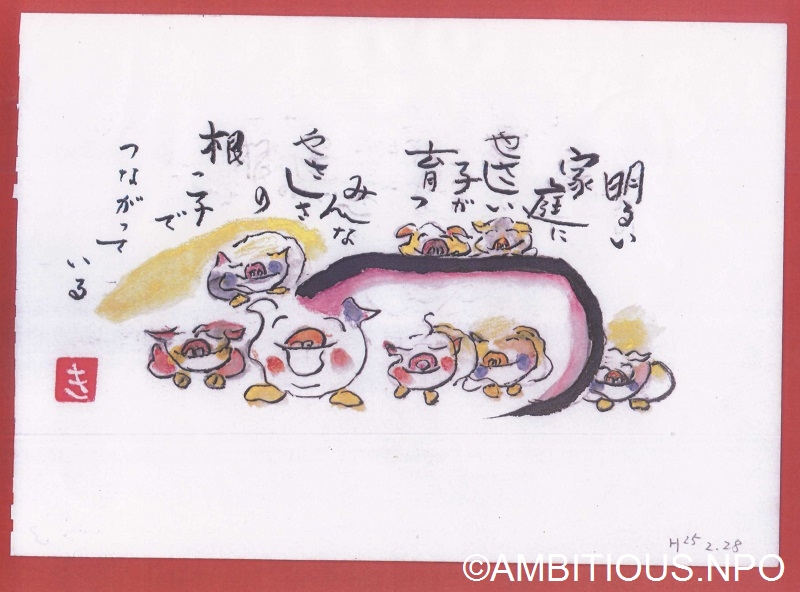 明るい
家庭に
やさしい
子が
育つ
みんな
やさしさ
の
根っ子
で
つながって
いる
き
H25 2.28
©AMBITIOUS.NPO